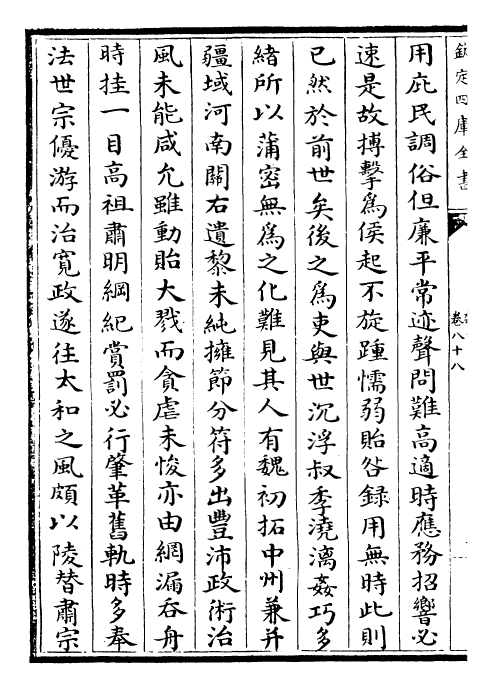 欽定四庫全書
卷八十八
用庇民調俗但廉平常迹聲問難高適時應務招響必
速是故搏擊為侯起不旋踵懦弱貽咎録用無時此則
已然於前世矣後之為吏與世沉浮叔季澆漓姦巧多
緒所以蒲密無為之化難見其人有魏初拓中州兼并
疆域河南關右遺黎未純擁節分符多出豐沛政術治
風未能咸允雖動貽大戮而貪虐未悛亦由網漏吞舟
時挂一目高祖肅明綱紀賞罰必行肇革舊軌時多奉
法世宗優游而治寛政遂往太和之風頗以陵替肅宗